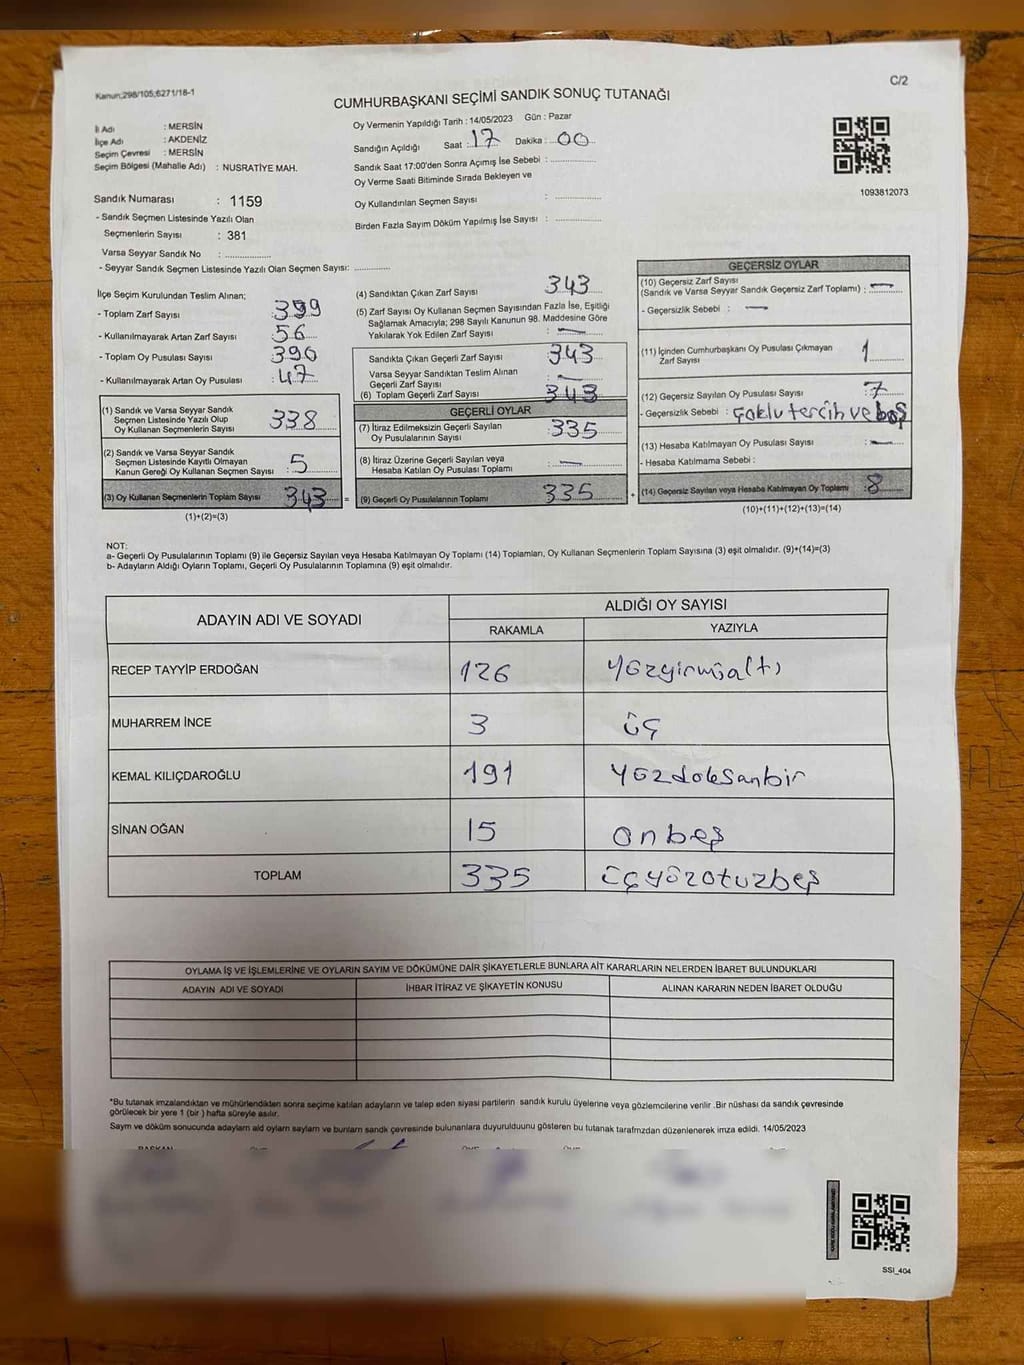 C/2
Kanun;298/105;6271/18-1
CUMHURBAŞKANI SEÇİMİ SANDIK SONUÇ TUTANAĞI
İl Adı : MERSİN
İlçe Adı : AKDENİZ
Seçim Çevresi : MERSİN
Seçim Bölgesi (Mahalle Adı) : NUSRATİYE MAH.
Sandık Numarası : 1159
- Sandık Seçmen Listesinde Yazılı Olan
Seçmenlerin Sayısı : 381
Varsa Seyyar Sandık No : ..............
- Seyyar Sandık Seçmen Listesinde Yazılı Olan Seçmen Sayısı: ............
Oy Vermenin Yapıldığı Tarih : 14/05/2023 Gün : Pazar
Sandığın Açıldığı Saat : 17 Dakika : 00
Sandık Saat 17:00'den Sonra Açımış İse Sebebi : ..............
Oy Verme Saati Bitiminde Sırada Bekleyen ve
Oy Kullandırılan Seçmen Sayısı : ..............
Birden Fazla Sayım Döküm Yapılmış İse Sayısı : ..............
1093812073
İlçe Seçim Kurulundan Teslim Alınan;
- Toplam Zarf Sayısı : 399
- Kullanılmayarak Artan Zarf Sayısı : 56
- Toplam Oy Pusulası Sayısı : 390
- Kullanılmayarak Artan Oy Pusulası : 47
(1) Sandık ve Varsa Seyyar Sandık
Seçmen Listesinde Yazılı Olup
Oy Kullanan Seçmenlerin Sayısı : 338
(2) Sandık ve Varsa Seyyar Sandık
Seçmen Listesinde Kayıtlı Olmayan
Kanun Gereği Oy Kullanan Seçmen Sayısı : 5
(3) Oy Kullanan Seçmenlerin Toplam Sayısı : 343 =
(1)+(2)=(3)
(4) Sandıktan Çıkan Zarf Sayısı : 343
(5) Zarf Sayısı Oy Kullanan Seçmen Sayısından Fazla İse, Eşitliği
Sağlamak Amacıyla; 298 Sayılı Kanunun 98. Maddesine Göre
Yakılarak Yok Edilen Zarf Sayısı : —
Sandıkta Çıkan Geçerli Zarf Sayısı : 343
Varsa Seyyar Sandıktan Teslim Alınan
Geçerli Zarf Sayısı : —
(6) Toplam Geçerli Zarf Sayısı : 343
GEÇERLİ OYLAR
(7) İtiraz Edilmeksizin Geçerli Sayılan
Oy Pusulalarının Sayısı : 335
(8) İtiraz Üzerine Geçerli Sayılan veya
Hesaba Katılan Oy Pusulası Toplamı : —
(9) Geçerli Oy Pusulalarının Toplamı : 335 +
GEÇERSİZ OYLAR
(10) Geçersiz Zarf Sayısı
(Sandık ve Varsa Seyyar Sandık Geçersiz Zarf Toplamı) : —
- Geçersizlik Sebebi : —
(11) İçinden Cumhurbaşkanı Oy Pusulası Çıkmayan
Zarf Sayısı : 1
(12) Geçersiz Sayılan Oy Pusulası Sayısı : 7
- Geçersizlik Sebebi : çoklu tercih ve boş
(13) Hesaba Katılmayan Oy Pusulası Sayısı : —
- Hesaba Katılmama Sebebi :
(14) Geçersiz Sayılan veya Hesaba Katılmayan Oy Toplamı : 8
(10)+(11)+(12)+(13)=(14)
NOT:
a- Geçerli Oy Pusulalarının Toplamı (9) ile Geçersiz Sayılan veya Hesaba Katılmayan Oy Toplamı (14) Toplamları, Oy Kullanan Seçmenlerin Toplam Sayısına (3) eşit olmalıdır. (9)+(14)=(3)
b- Adayların Aldığı Oyların Toplamı, Geçerli Oy Pusulalarının Toplamına (9) eşit olmalıdır.
ADAYIN ADI VE SOYADI ALDIĞI OY SAYISI
RAKAMLA YAZIYLA
RECEP TAYYİP ERDOĞAN 126 yüzyirmialtı
MUHARREM İNCE 3 üç
KEMAL KILIÇDAROĞLU 191 yüzdoksanbir
SİNAN OĞAN 15 onbeş
TOPLAM 335 üçyüzotuzbeş
OYLAMA İŞ VE İŞLEMLERİNE VE OYLARIN SAYIM VE DÖKÜMÜNE DAİR ŞİKAYETLERLE BUNLARA AİT KARARLARIN NELERDEN İBARET BULUNDUKLARI
ADAYIN ADI VE SOYADI İHBAR İTİRAZ VE ŞİKAYETİN KONUSU ALINAN KARARIN NEDEN İBARET OLDUĞU
*Bu tutanak imzalandıktan ve mühürlendikten sonra seçime katılan adayların ve talep eden siyasi partilerin sandık kurulu üyelerine veya gözlemcilerine verilir .Bir nüshası da sandık çevresinde
görülecek bir yere 1 (bir ) hafta süreyle asılır.
Sayım ve döküm sonucunda adayların ald oyların sayılarn ve bunların sandk çevresinde bulunanlara duyurulduunu gösteren bu tutanak tarafmzdan düzenlenerek imza edildi. 14/05/2023
SSİ_404